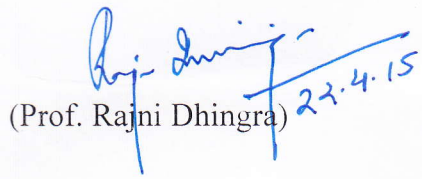 Rajni Dhingra
22.4.15
(Prof. Rajni Dhingra)